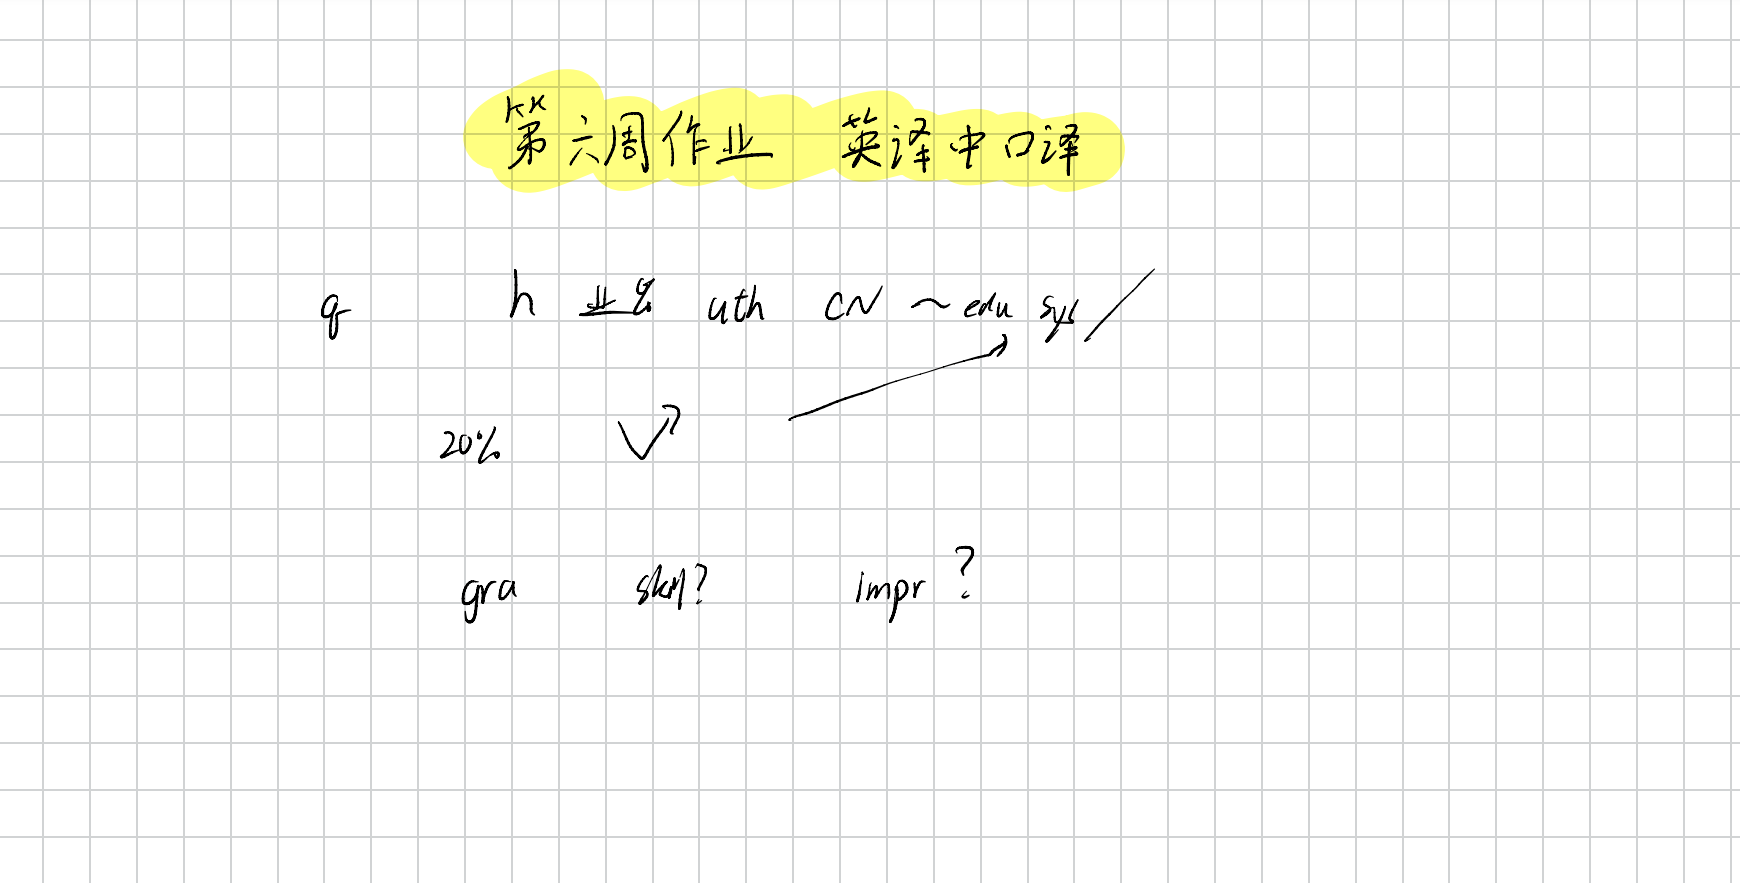 第六周作业 英译中口译
q h 业% uth CN ~ edu sys /
20%
gra skil? impr?